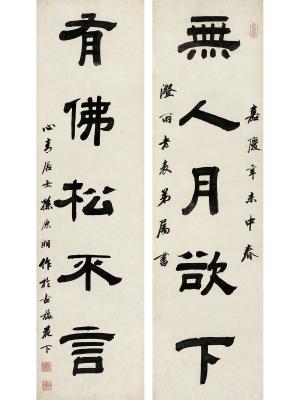 無人月欲下
嘉慶辛未中春
澄雨老表弟屬書
有佛松不言
心青居士孫原湘作於古梅花下